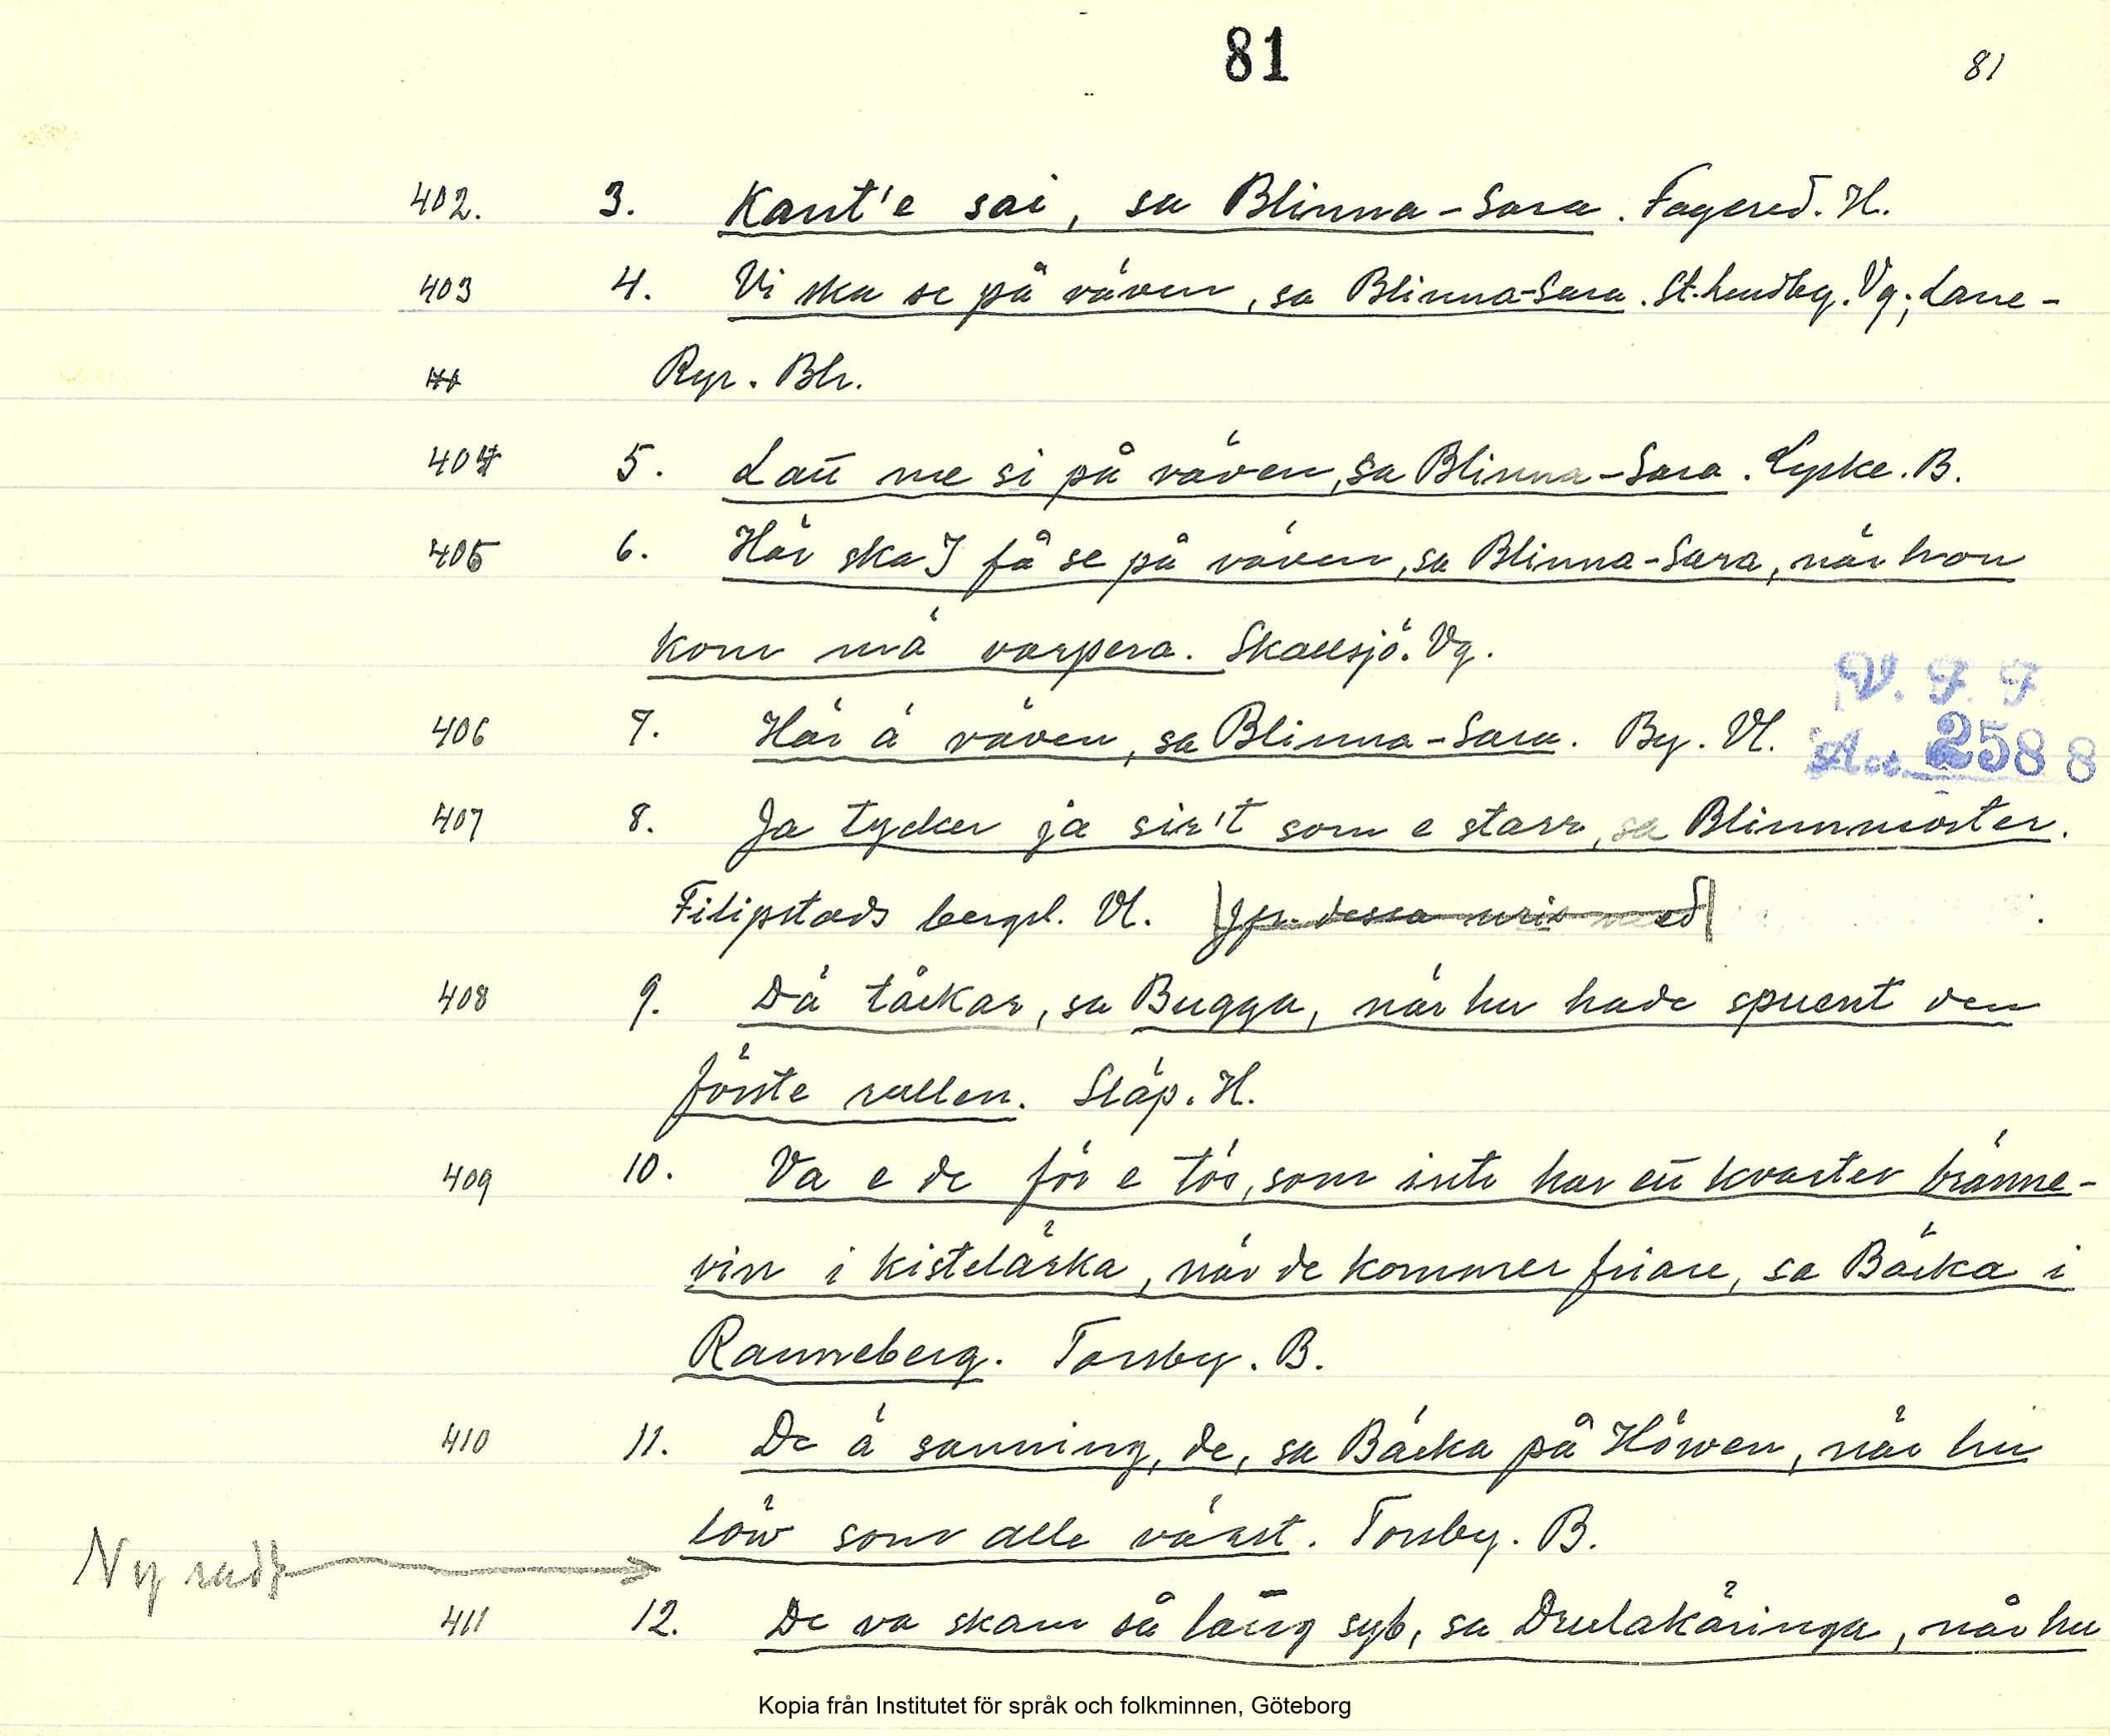 81
81
402. 3. Kant'e sai, sa Blinna-Sara. Fagered. H.
403 4. Vi ska se på väven, sa Blinna-Sara. St. Lundby. Vg.; Lane-
Ryr. Bh.
404 5. Laū me si på väven, sa Blinna-Sara. Lycke. B.
405 6. Här ska I få se på väven, sa Blinna-Sara, när hon
kom mä varpera. Skallsjö. Vg.
V. F. F.
406 7. Här ä väven, sa Blinna-Sara. By. Vl.
Acc. 2588
407 8. Ja tycker ja sir't som e starr, sa Blinnmoster.
Filipstads bergsl. Vl. Jfr. dessa med
408 9. Dä täckar, sa Bugga, när hu hade spunnt den
förste rullen. Släp. H.
409 10. Va e de för e tös, som inte har eū kvarter bränne-
vin i kistelärka, när de kommer friare, sa Bäcka i
Ranneberg. Torsby. B.
410 11. De ä sanning, de, sa Bäcka på Höwen, när hu
löw som alle värst. Torsby. B.
Ny rad
411 12. De va skam så lāng syb, sa Drulakäringa, når hu
Kopia från Institutet för språk och folkminnen, Göteborg